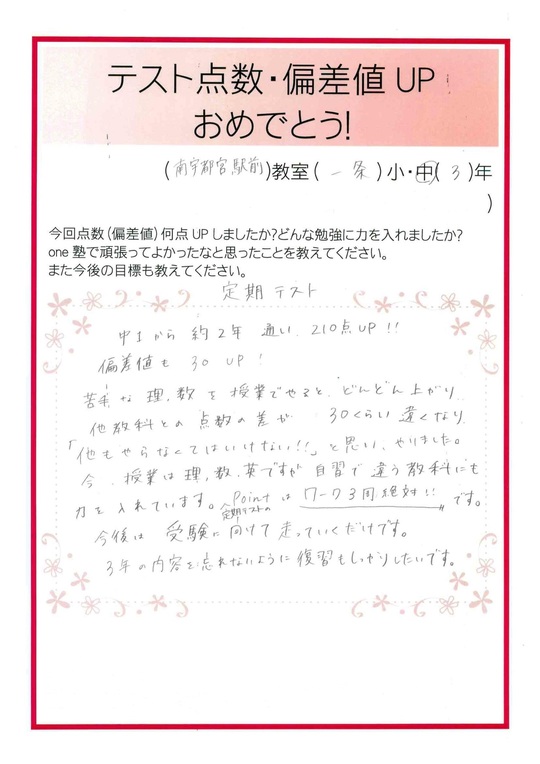 テスト点数・偏差値 UP
おめでとう!
(南宇都宮駅前)教室(一条)小・中(3)年
)
今回点数(偏差値)何点 UP しましたか?どんな勉強に力を入れましたか?
one 塾で頑張ってよかったなと思ったことを教えてください。
また今後の目標も教えてください。
定期テスト
中1から 約2年 通い 210点UP!!
偏差値も 30 UP!
苦手な 理,数を授業でやると、どんどん上がり
他教科との 点数の差が 30くらい 違くなり
「他もやらなくてはいけない!!」と思い、やりました。
今、授業は理,数,英ですが自習で違う教科にも
力を入れています。定期テストのPointは ワーク3周絶対!! です。
今後は 受験に向けて走っていくだけです。
3年の内容を忘れないように復習もしっかりしたいです。